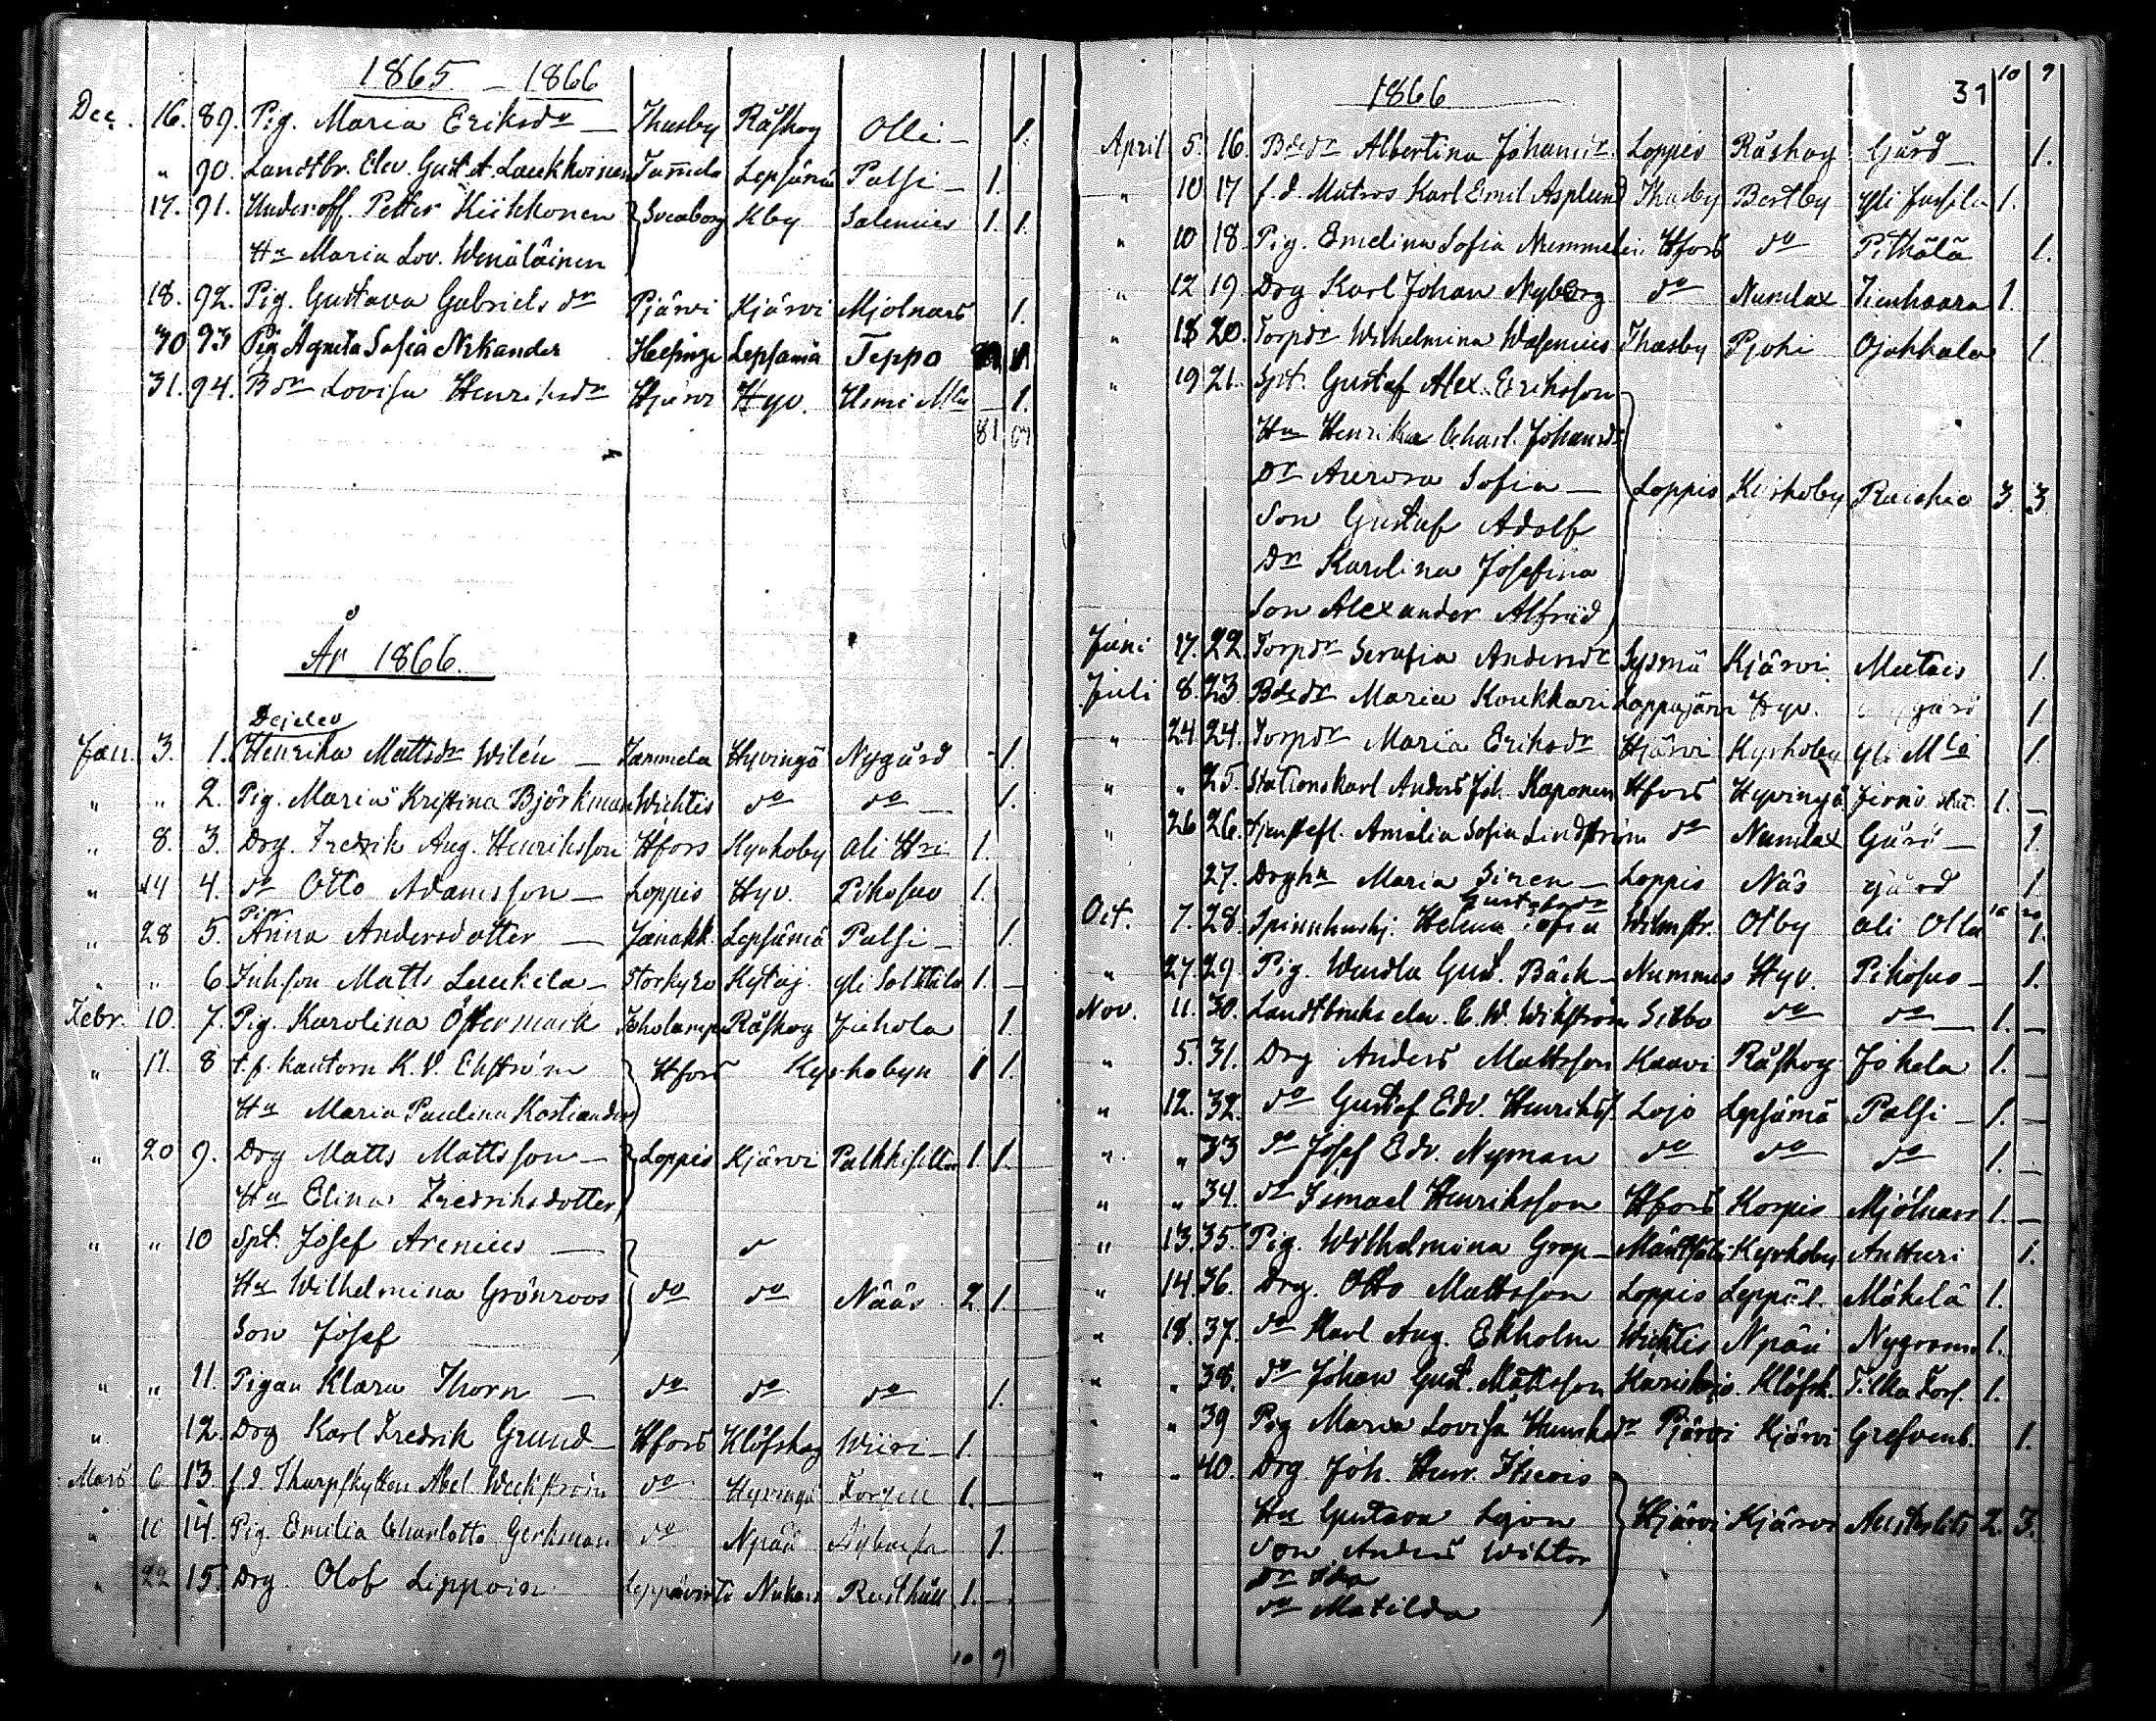 1865 - 1866
Dec. 16. 89. Pig. Maria Eriksdr — Thusby Råskog Olli — 1.
" 90. Landtbr. Elev. Gust. A. Laukkoinen Tammela Lepsämä Palsi — 1.
17. 91. Underoff. Petter Kiikkonen Sveaborg Kby Salenius 1. 1.
Hu Maria Lov. Wenäläinen
18. 92. Pig. Gustava Gabrielsdr Pjärvi Kjärvi Mjölnars 1.
30 93 Pig Agneta Sofia Nikander Helsinge Lepsämä Teppo
31. 94. Bdr Lovisa Henriksdr Hjärvi Hyv. — 1.
81
År 1866.
Dejelev
Jan. 3. 1. Henrika Mattsdr Wilén — Tammela Hyvingä Nygård - 1.
" " 2. Pig. Maria Kristina Björkman Wichtis do do — 1.
" 8. 3. Drg. Fredrik Aug. Henriksson Hfors Kyrkoby Ali 1.
" 14 4. do Otto Adamsson — Loppis Hyv. Pikosuo 1.
Pig.
" 28 5. Anna Andersdotter — Janakk. Lepsämä Palsi — 1.
" " 6 Inh.son Matts Luukila — Storkyro Kytäj. yli Solttila 1. —
Febr. 10. 7. Pig. Karolina Östermark Råskog Juhola 1.
" 11. 8 t.f. kantorn K. V. Ekström Hfors Kyrkobyn 1 1.
Hu Maria Paulina Kostiander
" 20 9. Drg Matts Mattsson — Loppis Kjärvi 1. 1.
Hu Elina Fredriksdotter
" " 10 Spt. Josef Arenius —
Hu Wilhelmina Grönroos do do Nääs 2. 1.
Son Josef
" " 11. Pigan Klara Thorn — do do do 1.
" 12. Drg Karl Fredrik Grund — Hfors Klöfskog Wiiri — 1.
Mars 6 13. f.d. Skarpskytten Abel Weckström do Hyvingä Torpen 1. —
" 10 14. Pig. Emilia Charlotta Gerkman do Npää 1.
" 22 15. Drg. Olof Lippoin Leppävirta Nukari Rusthåll 1. —
10 9
1866
31 10 9
April 5. 16. Bdedr Albertina Johansdr Loppis Råskog Gård — 1.
" 10 17 f.d. Matros Karl Emil Asplund Thusby Bertby yli Jussila 1.
" 10 18. Pig. Emelina Sofia Nummelin Hfors do Pithälä 1.
" 12 19. Drg Karl Johan Nyberg do Numlax Tienhaara 1.
" 18 20. Torpdr Wilhelmina Wasenius Thusby Pjohi Ojakkala 1.
" 19 21. Spt. Gustaf Alex. Eriksson
Hu Henrika Charl. Johansdr
Dr Aurora Sofia — Loppis Kyrkoby 3. 3.
Son Gustaf Adolf
Dr Karolina Josefina
Son Alexander Alfrid
Juni 17. 22. Torpdr Serafia Andersdr Sysmä Kjärvi 1.
Juli 8. 23. Bdedr Maria Koukkari Lappajärvi Hyv. 1
" 24 24. Torpdr Maria Eriksdr Hjärvi Kyrkoby yli 1.
" " 25. Stationskarl Anders Joh. Kaponen Hfors Hyvingä 1. —
" 26 26. Amalia Sofia Lindström do Numlax Gård — 1
27. Drghu Maria Siren — Loppis Näs gård 1
Gustafsdr
Oct. 7. 28. Spinnhushj. Helena Sofia Wilmstr. Otby ali Olla 1.
" 27. 29. Pig. Wendla Gust. Bäck — Nummis Hyv. Pikosuo — 1.
Nov. 11. 30. Landtbruks elev. C. W. Wikström Sibbo do do — 1. —
" 5. 31. Drg Anders Mattsson Kaavi Råskog Jokela 1. —
" 12. 32. do Gustaf Edv. Henrikss. Lojo Lepsämä Palsi — 1. —
" " 33 do Josef Edv. Nyman do do do 1. —
" " 34. do Ismael Henriksson Hfors Korpis Mjölnars 1. —
" 13. 35. Pig. Wilhelmina Grop — Mäntsälä Kyrkoby Antturi 1.
" 14. 36. Drg. Otto Mattsson Loppis Leppäl. Mäkelä 1.
" 18. 37. do Karl Aug. Ekholm Wichtis Npää Nygrann 1.
" " 38. do Johan Gust. Mattsson Karislojo Klöfsk. Tilka Torp. 1.
" " 39 Pig Maria Lovisa Pjärvi Kjärvi Grefvenb. 1.
" " 40. Drg. Joh. Henr.
Hu Gustava Lejon Hjärvi Kjärvi 2. 3.
Son Anders Wiktor
Dr Ida
do Matilda